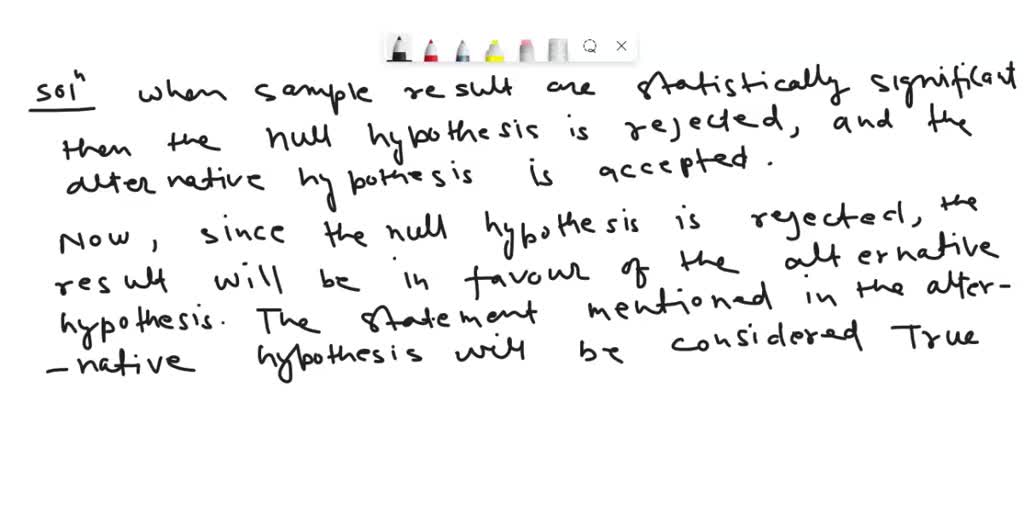 Solⁿ when sample result are statistically significant
then the null hypothesis is rejected, and the
alternative hypothesis is accepted.
Now, since the null hypothesis is rejected, the
result will be in favour of the alternative
hypothesis. The statement mentioned in the alter-
-native hypothesis will be considered True